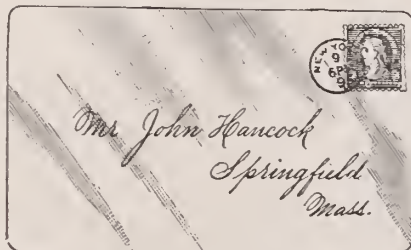 NEW YO
9
6P
9
Mr John Hancock
Springfield
Mass.